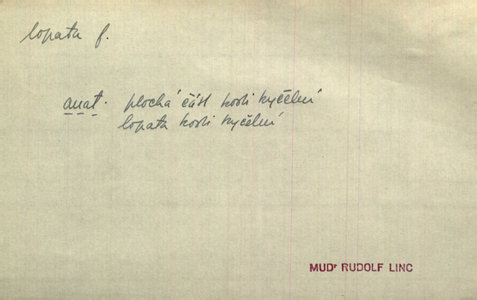 lopata f.
anat. plochá část kosti kyčelní
lopata kosti kyčelní
MUDr RUDOLF LINC